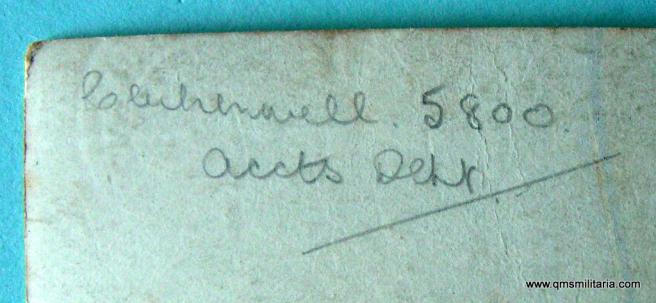 Clerkenwell. 5800.
Accts Dept.
www.qmsmilitaria.com